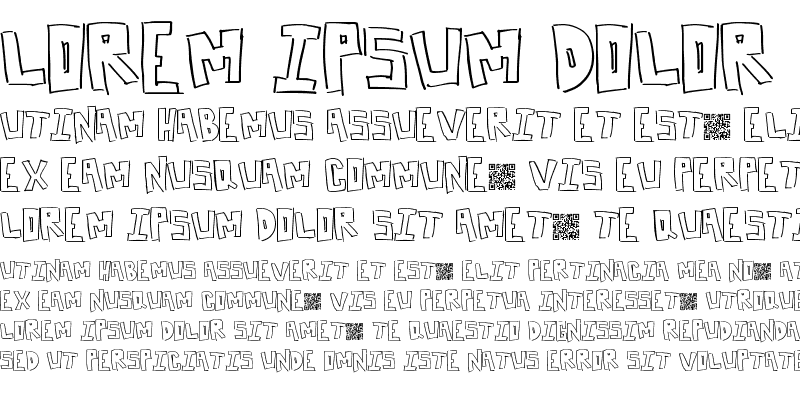 LOREM IPSUM DOLOR
UTINAM HABEMUS ASSUEVERIT ET EST ELI
EX EAM NUSQUAM COMMUNE VIS EU PERPET
LOREM IPSUM DOLOR SIT AMET TE QUAESTI
UTINAM HABEMUS ASSUEVERIT ET EST ELIT PERTINACIA MEA NO AT
EX EAM NUSQUAM COMMUNE VIS EU PERPETUA INTERESSET UTROQUE
LOREM IPSUM DOLOR SIT AMET TE QUAESTIO DIGNISSIM REPUDIANDA
SED UT PERSPICIATIS UNDE OMNIS ISTE NATUS ERROR SIT VOLUPTATE